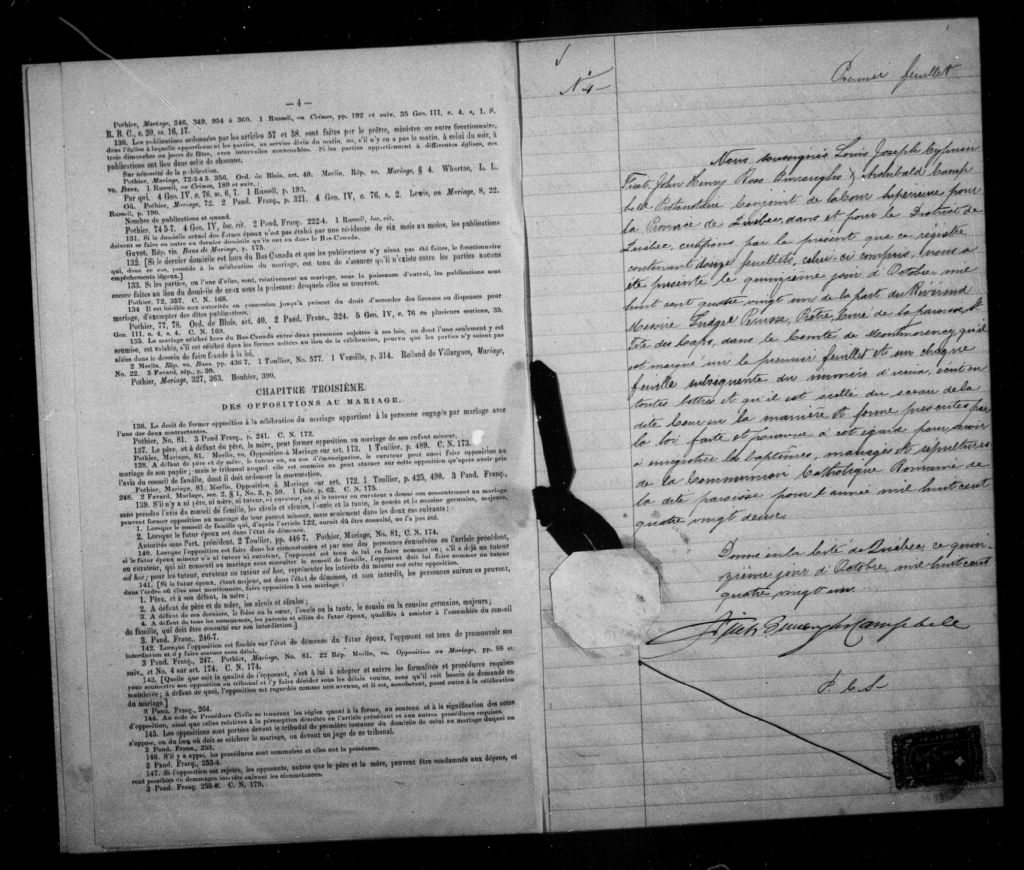 — 4 —
Pothier, Mariage, 346, 349, 954 à 360. 1 Russell, on Crimes, pp. 192 et suiv. 35 Geo. III, c. 4, s. 1. S.
R. B. C., c. 20, ss. 16, 17.
130. Les publications ordonnées par les articles 57 et 58, sont faites par le prêtre, ministre ou autre fonctionnaire,
dans l'église à laquelle appartiennent les parties, au service divin du matin, ou, s'il n'y en a pas le matin, à celui du soir, à
trois dimanches ou jours de fêtes, avec intervalles convenables. Si les parties appartiennent à différentes églises, ces
publications ont lieu dans celle de chacune.
Sur nécessité de la publication.
Pothier, Mariage, 72-3 4 5. 356. Ord. de Blois, art. 40. Merlin, Rép. vo. Mariage, § 4. Wharton, L. L.
vo. Bans. 1 Russell, on Crimes, 189 et suiv. :
Par qui. 4 Geo. IV, c. 76, ss. 6, 7. 1 Russell, p. 193.
Où. Pothier, Mariage, 72. 2 Pand. Franç., p. 321. 4 Geo. IV, c. 76, s. 2. Lewis, on Mariage, 8, 22.
Russell, p. 190.
Nombre de publications et quand.
Pothier, 74 5-7. 4 Geo. IV, loc. cit. 2 Pand. Franç. 222-4. 1 Russell, loc. cit.
131. Si le domicile actuel des futurs époux n'est pas établi par une résidence de six mois au moins, les publications
doivent se faire en outre au dernier domicile qu'ils ont eu dans le Bas Canada.
Guyot, Rép. vo. Bans de Mariage, p. 175.
132. [Si le dernier domicile est hors du Bas Canada et que les publications n'y aient pas été faites, le fonctionnaire
qui, dans ce cas, procède à la célébration du mariage, est tenu de s'assurer qu'il n'existe entre les parties aucuns
empêchements légaux.]
133. Si les parties, ou l'une d'elles, sont, relativement au mariage, sous la puissance d'autrui, les publications sont
encore faites au lieu du domicile de ceux sous la puissance desquels elles se trouvent.
Pothier, 72, 357. C. N. 168.
134. Il est loisible aux autorités en possession jusqu'à présent du droit d'accorder des licences ou dispenses pour
mariage, d'exempter des dites publications.
Pothier, 77, 78. Ord. de Blois, art. 40. 2 Pand. Franç., 324. 5 Geo. IV, c. 76 en plusieurs sections, 35.
Geo. III, c. 4, s. 4. C. N. 169.
135. Le mariage célébré hors du Bas Canada entre deux personnes sujettes à ses lois, ou dont l'une seulement y est
soumise, est valable, s'il est célébré dans les formes usitées au lieu de la célébration, pourvu que les parties n'y soient pas
allées dans le dessein de faire fraude à la loi.
2 Merlin, Rép. vo. Bans, pp. 436 7. 1 Toullier, No. 577. 1 Vazeille, p. 314. Rolland de Villargues, Mariage,
No. 22. 3 Favard, rép., p. 39.
Pothier, Mariage, 327, 363. Bouhier, 390.
CHAPITRE TROISIÈME.
DES OPPOSITIONS AU MARIAGE.
136. Le droit de former opposition à la célébration du mariage appartient à la personne engagée par mariage avec
l'une des deux contractantes.
Pothier, No. 81. 3 Pand Franç., p. 241. C. N. 172.
137. Le père, et à défaut du père, la mère, peut former opposition au mariage de son enfant mineur.
Pothier, Mariage, 81. Merlin, vo. Opposition à Mariage sur art. 173. 1 Toullier, p. 489. C. N. 173.
138. A défaut de père et de mère, le tuteur ou, au cas d'émancipation, le curateur peut aussi faire opposition au
mariage de son pupille; mais le tribunal auquel elle est soumise ne peut statuer sur cette opposition qu'après avoir pris
l'avis du conseil de famille, dont il doit ordonner la convocation.
Pothier, Mariage, 81. Merlin, Opposition à Mariage sur art. 172. 1 Toullier, p. 425, 490. 3 Pand. Franç.,
248. 2 Favard, Mariage, sec. 2, § 1, No. 3, p. 59. 1 Delv. p. 62. C. N. 175.
139. S'il n'y a ni père, ni mère, ni tuteur, ni curateur, ou si le tuteur ou curateur a donné son consentement au mariage
sans prendre l'avis du conseil de famille, les aïeuls et aïeules, l'oncle et la tante, le cousin et la cousine germains, majeurs,
peuvent former opposition au mariage de leur parent mineur, mais seulement dans les deux cas suivants :
1. Lorsque le conseil de famille qui, d'après l'article 122, aurait dû être consulté, ne l'a pas été.
2. Lorsque le futur époux est dans l'état de démence.
Autorités sous l'art. précédent. 2 Toullier, pp. 446-7. Pothier, Mariage, No. 81, C. N. 174.
140. Lorsque l'opposition est faite dans les circonstances et par une des personnes énumérées en l'article précédent,
si le futur époux mineur n'a ni tuteur ni curateur, l'opposant est tenu de lui en faire nommer un; s'il a déjà un tuteur
ou curateur, qui ait consenti au mariage sans consulter le conseil de famille, l'opposant doit lui faire nommer un tuteur
ad hoc; pour les tuteur, curateur ou tuteur ad hoc, représenter les intérêts du mineur sur cette opposition.
141. [Si le futur époux, étant majeur, est dans l'état de démence, et non interdit, les personnes suivantes peuvent,
dans l'ordre où elles sont mentionnées, faire opposition à son mariage :
1. Père, et à son défaut, la mère;
2. A défaut de père et de mère, les aïeuls et aïeules;
3. A défaut de ces derniers, le frère ou la sœur, l'oncle ou la tante, le cousin ou la cousine germains, majeurs;
4. A défaut de tous les susnommés, les parents et alliés du futur époux, qualifiés à assister à l'assemblée du conseil
de famille, qui doit être consulté sur son interdiction.]
3. Pand. Franç., 246-7.
142. Lorsque l'opposition est fondée sur l'état de démence du futur époux, l'opposant est tenu de promouvoir son
interdiction et d'y faire statuer sans délai.
3 Pand. Franç., 247. Pothier, Mariage, No. 81. 22 Rép. Merlin, vo. Opposition au Mariage, pp. 88 et
suiv., et No. 4 sur art. 174. C. N. 174.
143. [Quelle que soit la qualité de l'opposant, c'est à lui à adopter et suivre les formalités et procédures requises
pour soumettre son opposition au tribunal et l'y faire décider sous les délais voulus, sans qu'il soit besoin de demande en
mainlevée; à défaut de quoi, l'opposition est regardée comme non avenue, et il est, nonobstant, passé outre à la célébration
du mariage.]
3 Pand. Franç., 264.
144. Au code de Procédure Civile se trouvent les règles quant à la forme, au contenu et à la signification des actes
d'opposition, ainsi que celles relatives à la péremption décrétée en l'article précédent et aux autres procédures requises.
145. Les oppositions sont portées devant le tribunal de première instance du domicile de celui au mariage duquel on
s'oppose, ou du lieu où doit se célébrer le mariage, ou devant un juge de ce tribunal.
3 Pand. Franç., 253.
146. S'il y a appel, les procédures sont sommaires et elles ont la préséance.
3 Pand. Franç., 253-4.
147. Si l'opposition est rejetée, les opposants, autres que le père et la mère, peuvent être condamnés aux dépens, et
sont passibles de dommages-intérêts suivant les circonstances.
3 Pand. Franç. 255-6. C. N. 179.
N° 4
Premier feuillet
Nous soussignés Louis Joseph Cyprien
Fiset, John Henry Ross Burroughs & Archibald Camp
bell, Protonotaire Conjoint de la Cour Supérieure pour
la Province de Québec, dans et pour le District de
Québec, certifions par le présent que ce registre
contenant douze feuillets, celui-ci compris, nous a
été présenté le quinzième jour d'Octobre, mil
huit cent quatre vingt un de la part du Révérend
Messire Prêtre, Curé de la paroisse St
Tite des Caps, dans le Comté de Montmorency, qu'il
est marqué sur le premier feuillet et sur chaque
feuille subséquente du numéro d'iceux, écrit en
toutes lettres et qu'il est scellé du sceau de la
dite Cour en la manière et forme prescrites par
la loi faite et pourvue à cet égard pour servir
à enregistrer les baptêmes, mariages et sépultures
de la Communion Catholique Romaine de
la dite paroisse pour l'année mil huit cent
quatre vingt deux.
Donné en la Cité de Québec ce quin-
zième jour d'Octobre, mil huit cent
quatre vingt un.
Fiset Burroughs Campbell
P. C. S.